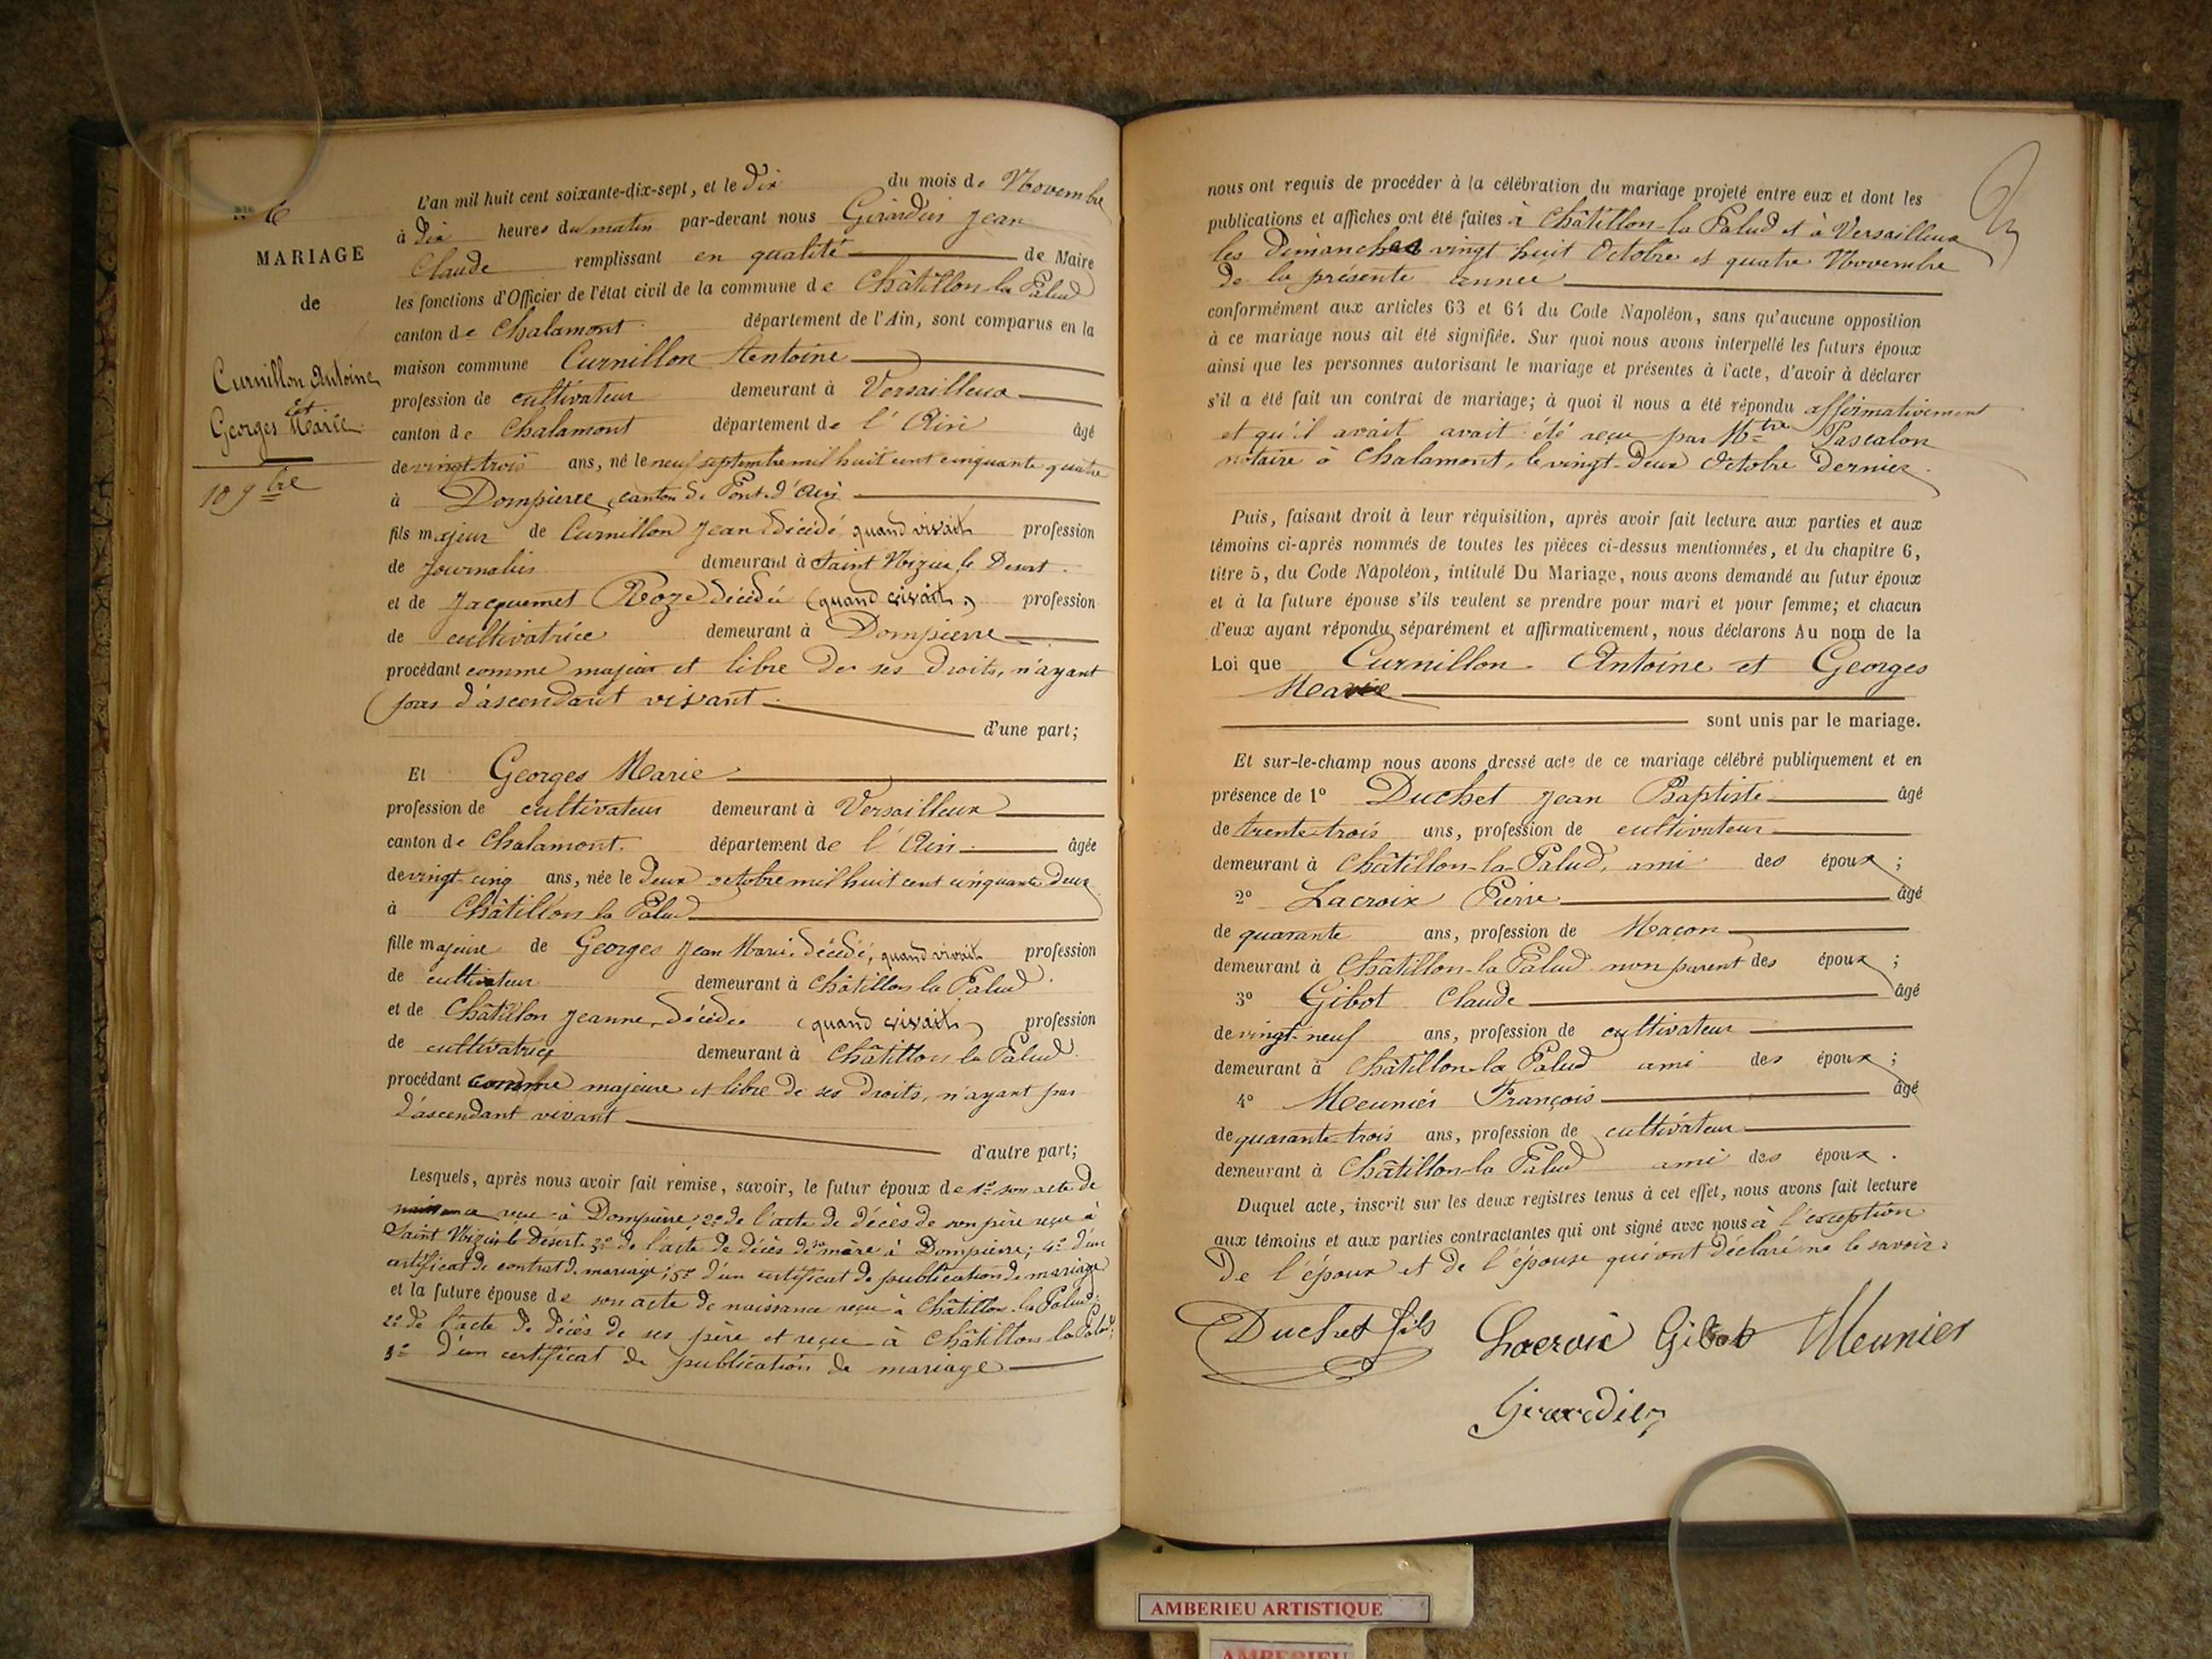 N° 6
MARIAGE
de
Curnillon Antoine
et
Georges Marie
10 9bre
L'an mil huit cent soixante-dix-sept, et le dix du mois de Novembre
à dix heures du matin par-devant nous Girardin Jean
Claude remplissant en qualité de Maire
les fonctions d'Officier de l'état civil de la commune de Châtillon la Palud
canton de Chalamont département de l'Ain, sont comparus en la
maison commune Curnillon Antoine
profession de cultivateur demeurant à Versailleux
canton de Chalamont département de l'Ain âgé
de vingt-trois ans, né le neuf septembre mil huit cent cinquante quatre
à Dompierre, canton de Pont-d'Ain
fils majeur de Curnillon Jean décédé, quand vivait profession
de journalier demeurant à Saint Nizier le Desert
et de Jacquemet Roze décédée (quand vivait) profession
de cultivatrice demeurant à Dompierre
procédant comme majeur et libre de ses droits, n'ayant
pas d'ascendant vivant
d'une part;
Et Georges Marie
profession de cultivateur demeurant à Versailleux
canton de Chalamont département de l'Ain âgée
de vingt-cinq ans, née le deux octobre mil huit cent cinquante deux
à Châtillon la Palud
fille majeure de Georges Jean Marie, décédé, quand vivait profession
de cultivateur demeurant à Châtillon la Palud.
et de Châtillon Jeanne, décédée (quand vivait) profession
de cultivatrice demeurant à Châtillon la Palud.
procédant comme majeure et libre de ses droits, n'ayant pas
d'ascendant vivant
d'autre part;
Lesquels, après nous avoir fait remise, savoir, le futur époux de 1° son acte de
naissance reçu à Dompierre; 2° de l'acte de décès de son père reçu à
Saint Nizier le Désert 3° de l'acte de décès de sa mère à Dompierre; 4° d'un
certificat de contrat de mariage; 5° d'un certificat de publication de mariage
et la future épouse de son acte de naissance reçu à Châtillon-la-Palud;
2° de l'acte de décès de ses père et reçu à Châtillon la Palud;
3° d'un certificat de publication de mariage
nous ont requis de procéder à la célébration du mariage projeté entre eux et dont les
publications et affiches ont été faites à Châtillon-la Palud et à Versailleux
les Dimanches vingt huit Octobre et quatre Novembre
de la présente année
conformément aux articles 63 et 64 du Code Napoléon, sans qu'aucune opposition
à ce mariage nous ait été signifiée. Sur quoi nous avons interpellé les futurs époux
ainsi que les personnes autorisant le mariage et présentes à l'acte, d'avoir à déclarer
s'il a été fait un contrat de mariage; à quoi il nous a été répondu affirmativement
et qu'il avait avait été reçu par Mtre Pascalon
notaire à Chalamont, le vingt-deux Octobre dernier.
Puis, faisant droit à leur réquisition, après avoir fait lecture aux parties et aux
témoins ci-après nommés de toutes les pièces ci-dessus mentionnées, et du chapitre 6,
titre 5, du Code Napoléon, intitulé Du Mariage, nous avons demandé au futur époux
et à la future épouse s'ils veulent se prendre pour mari et pour femme; et chacun
d'eux ayant répondu séparément et affirmativement, nous déclarons Au nom de la
Loi que Curnillon Antoine et Georges
Marie
sont unis par le mariage.
Et sur-le-champ nous avons dressé acte de ce mariage célébré publiquement et en
présence de 1° Duchet Jean Baptiste âgé
de trente-trois ans, profession de cultivateur
demeurant à Châtillon-la-Palud, ami des époux;
2° Lacroix Pierre âgé
de quarante ans, profession de Maçon
demeurant à Châtillon-la Palud non parent des époux;
3° Gibot Claude âgé
de vingt-neuf ans, profession de cultivateur
demeurant à Châtillon-la Palud ami des époux;
4° Meunier François âgé
de quarante-trois ans, profession de cultivateur
demeurant à Châtillon-la Palud ami des époux.
Duquel acte, inscrit sur les deux registres tenus à cet effet, nous avons fait lecture
aux témoins et aux parties contractantes qui ont signé avec nous à l'exception
de l'époux et de l'épouse qui ont déclaré ne le savoir.
Duchet fils Lacroix Gibot Meunier
Girardin
AMBERIEU ARTISTIQUE
AMBERIEU